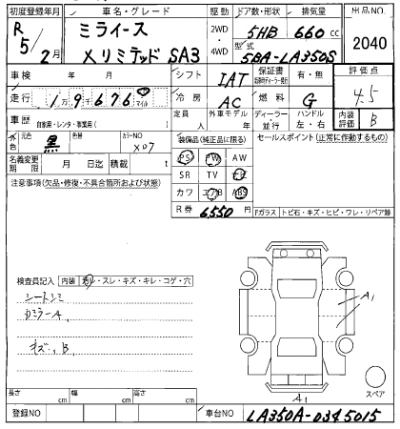 初度登録年月 車名・グレード 駆動 ドア数・形状 排気量 出品NO
R 5/2月 ミライース X リミテッド SA3 2WD・4WD 5HB 660cc 2040
型式 5BA-LA350S
車検 年 月 シフト IAT 保証書 有・無 評価点 4.5
走行 1万9676 マイル 冷房 AC 燃料 G
車歴 自家用・レンタ・事業用( ) 定員 人 外車モデル 年 ディーラー・並行 ハンドル 左・右 内装評価 B
色 元色 黒 カラーNO X07 装備品(純正品に限る) セールスポイント(正常に作動するもの)
名義変更期限 月 日迄 積載 t PS PW AW
注意事項(欠品・修復・不具合箇所および状態) SR TV
カワ エアB ABS
R券 6550円
Fガラス トビ石・キズ・ヒビ・ワレ・リペア跡
検査員記入 内装 ・スレ・キズ・キレ・コゲ・穴
A1
キズ, B,
長さ cm 幅 cm 高さ cm A1 スペア
登録NO 車台NO LA350A-0345015